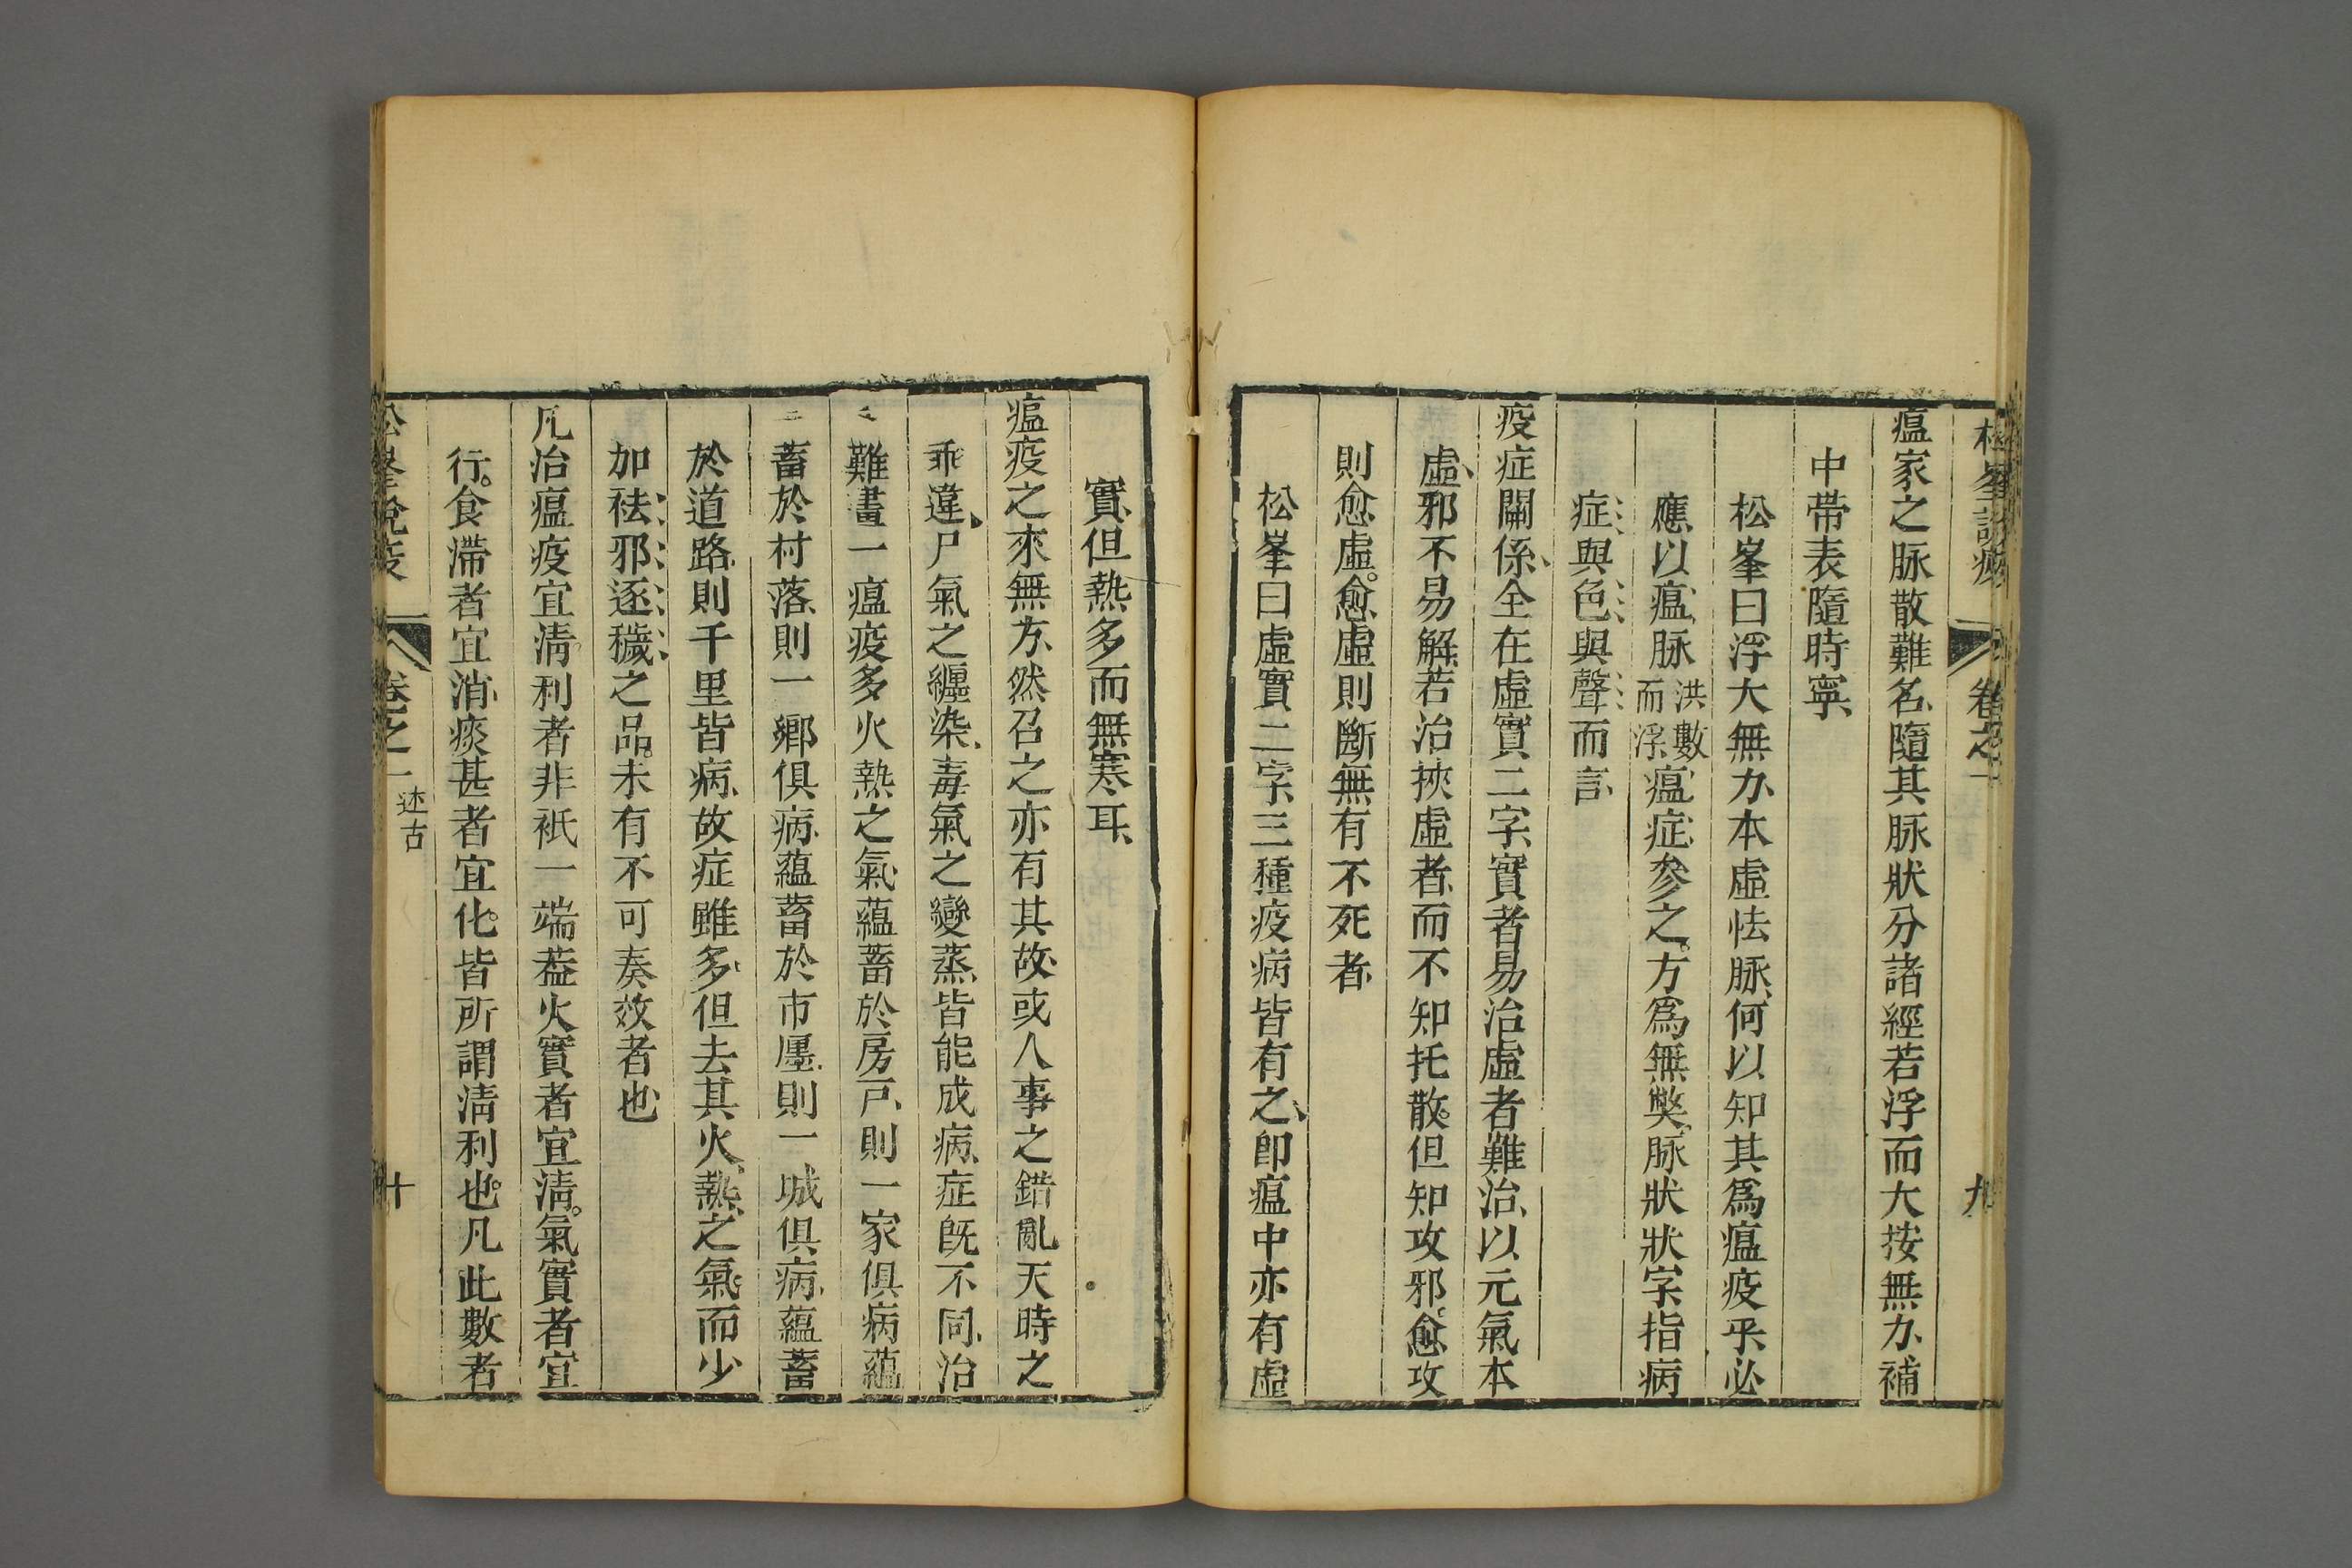 松峯說疫 卷之一 九
瘟家之脉散難名、隨其脉狀分諸經若浮而大按無力、補
中帶表隨時寧、
松峯曰浮大無力、本虛怯脉、何以知其爲瘟疫乎、必
應以瘟脉洪數而浮、瘟症、參之。方爲無弊、脉狀狀字、指病
症與色、與聲而言、
疫症關係、全在虛實二字、實者易治、虛者難治、以元氣本
虛、邪不易解、若治挾虛者、而不知托散。但知攻邪。愈攻
則愈虛。愈虛則斷無有不死者、
松峯曰虛實二字、三種疫病皆有之、卽瘟中亦有虛
實、但熱多而無寒耳、
瘟疫之來無方、然召之亦有其故、或人事之錯亂天時之
乖違、尸氣之纏染、毒氣之變蒸、皆能成病、症旣不同、治
難畫一瘟疫多火熱之氣、蘊蓄於房戶、則一家俱病蘊
蓄於村落、則一鄉俱病、蘊蓄於市廛、則一城俱病、蘊蓄
於道路、則千里皆病、故症雖多、但去其火熱之氣、而少
加祛邪逐穢之品。未有不可奏效者也、
凡治瘟疫宜清利者非衹一端葢火實者宜清。氣實者宜
行。食滯者宜消、痰甚者宜化。皆所謂清利也。凡此數者
松峯說疫 卷之一 述古 十